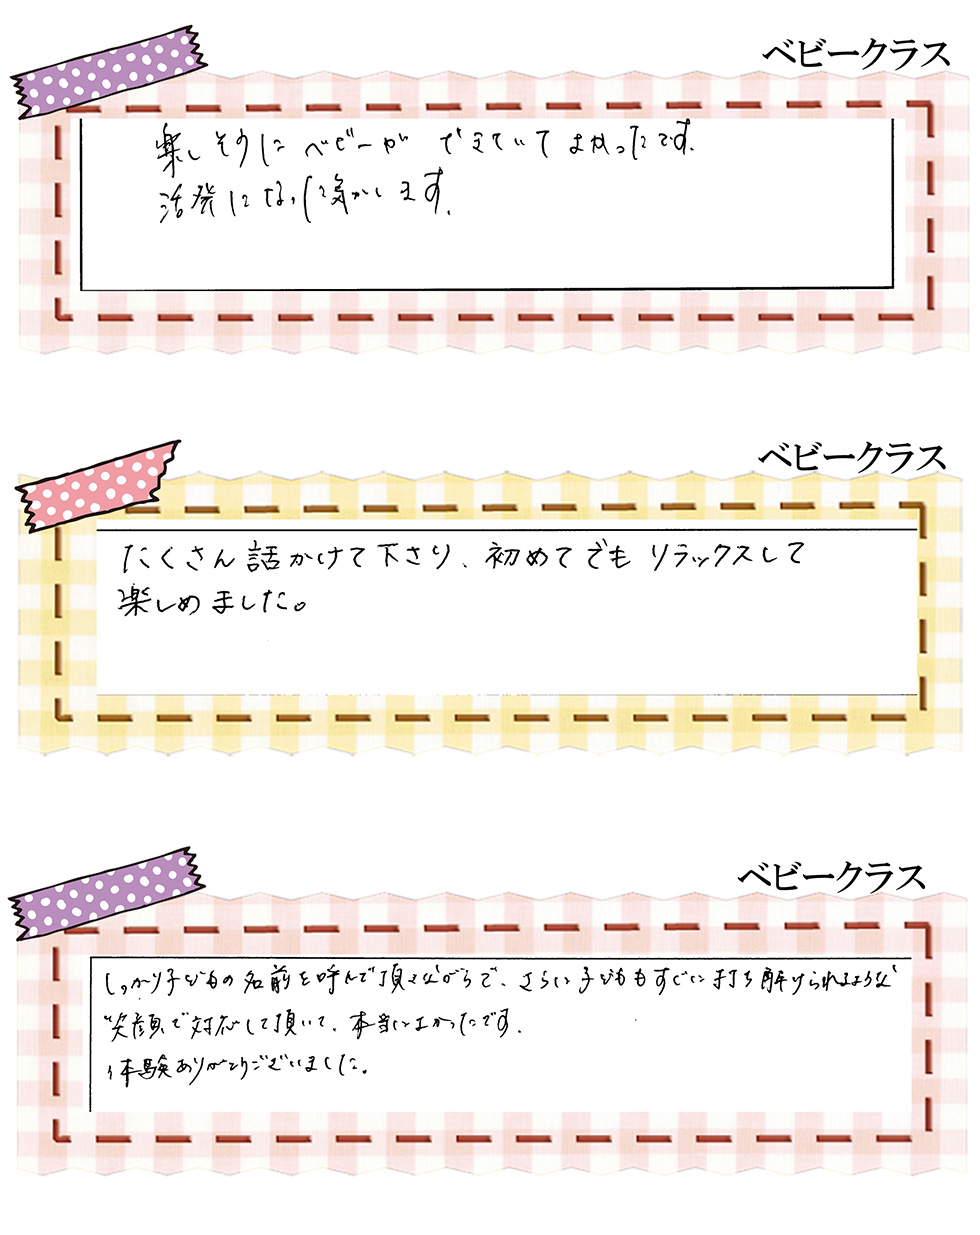 ベビークラス
楽しそうにベビーができていてよかったです。
活発になった気がします。
ベビークラス
たくさん話かけて下さり、初めてでもリラックスして
楽しめました。
ベビークラス
しっかり子どもの名前を呼んで頂きながらで、さらに子どももすぐに打ち解けられるような
笑顔で対応して頂いて、本当によかったです。
体験ありがとうございました。